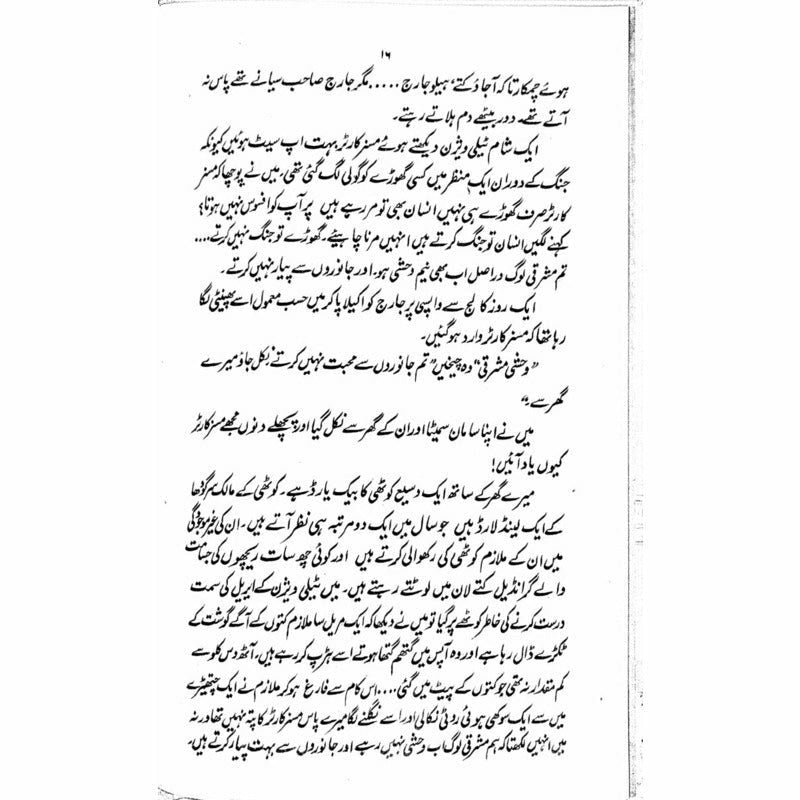 ۱۶
ہوئے چمکارتا کہ آجاؤ کتے، ہیلو جارج ..... مگر جارج صاحب سیانے تھے پاس نہ
آتے تھے۔ دور بیٹھے دم ہلاتے رہتے۔
ایک شام ٹیلی ویژن دیکھتے ہوئے مسز کارٹر بہت اپ سیٹ ہوئیں کیونکہ
جنگ کے دوران ایک منظر میں کسی گھوڑے کو گولی لگ گئی تھی۔ میں نے پوچھا کہ مسز
کارٹر صرف گھوڑے ہی نہیں انسان بھی تو مر رہے ہیں پر آپ کو افسوس نہیں ہوتا؟
کہنے لگیں انسان تو جنگ کرتے ہیں انہیں مرنا چاہیئے۔ گھوڑے تو جنگ نہیں کرتے....
تم مشرقی لوگ دراصل اب بھی نیم وحشی ہو۔ اور جانوروں سے پیار نہیں کرتے۔
ایک روز کالج سے واپسی پر جارج کو اکیلا پا کر میں حسب معمول اسے پھینٹی لگا
رہا تھا کہ مسز کارٹر وارد ہو گئیں۔
”وحشی مشرقی“ وہ چیخیں ”تم جانوروں سے محبت نہیں کرتے نکل جاؤ میرے
گھر سے۔“
میں نے اپنا سامان سمیٹا اور ان کے گھر سے نکل گیا اور پچھلے دنوں مجھے مسز کارٹر
کیوں یاد آئیں!
میرے گھر کے ساتھ ایک وسیع کوٹھی کا بیک یارڈ ہے۔ کوٹھی کے مالک سرگودھا
کے ایک لینڈ لارڈ ہیں جو سال میں ایک دو مرتبہ ہی نظر آتے ہیں۔ ان کی غیر موجودگی
میں ان کے ملازم کوٹھی کی رکھوالی کرتے ہیں اور کوئی چھ سات ریچھوں کی جسامت
والے گرانڈیل کتے لان میں لوٹتے رہتے ہیں۔ میں ٹیلی ویژن کے ایریل کی سمت
درست کرنے کی خاطر کوٹھے پر گیا تو میں نے دیکھا کہ ایک مریل سا ملازم کتوں کے آگے گوشت کے
ٹکڑے ڈال رہا ہے اور وہ آپس میں گتھم گتھا ہوتے اسے ہڑپ کر رہے ہیں۔ آٹھ دس کلو سے
کم مقدار نہ تھی جو کتوں کے پیٹ میں گئی.... اس کام سے فارغ ہو کر ملازم نے ایک چیتھڑے
میں سے ایک سوکھی ہوئی روٹی نکالی اور اسے نگلنے لگا میرے پاس مسز کارٹر کا پتہ نہیں تھا ورنہ
میں انہیں لکھتا کہ ہم مشرقی لوگ اب وحشی نہیں رہے اور جانوروں سے بہت پیار کرتے ہیں۔